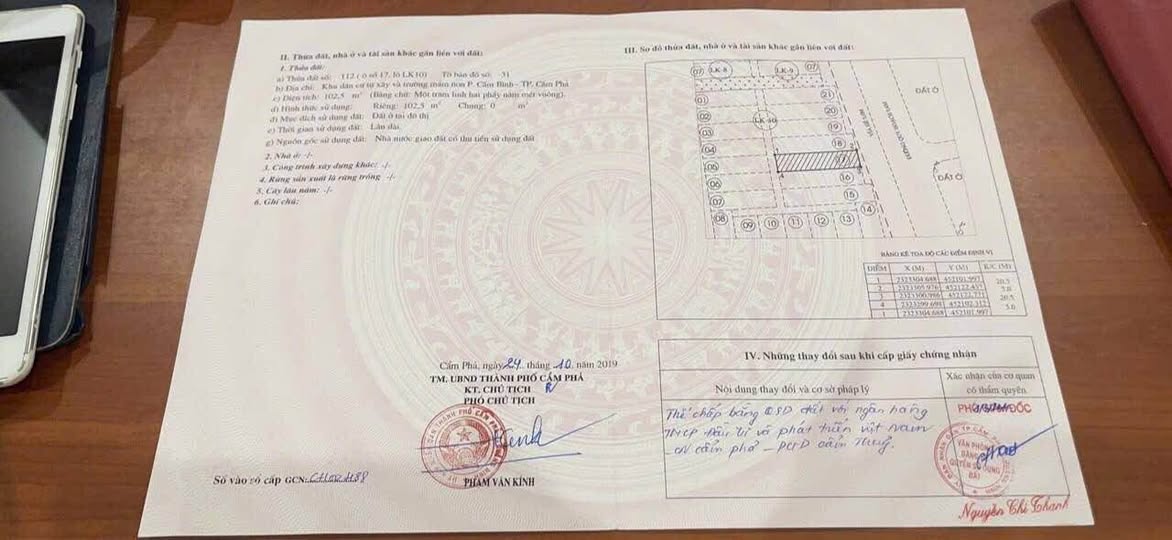 II. Thửa đất, nhà ở và tài sản khác gắn liền với đất:
1. Thửa đất:
a) Thửa đất số: 112 ( ô số 17, lô LK10) Tờ bản đồ số: 51
b) Địa chỉ: Khu dân cư tự xây và trường mầm non P. Cẩm Bình - TP. Cẩm Phả
c) Diện tích: 102,5 m² (Bằng chữ: Một trăm linh hai phẩy năm mét vuông).
d) Hình thức sử dụng: Riêng: 102,5 m² Chung: 0 m²
đ) Mục đích sử dụng đất: Đất ở tại đô thị
e) Thời gian sử dụng đất: Lâu dài.
g) Nguồn gốc sử dụng đất: Nhà nước giao đất có thu tiền sử dụng đất
2. Nhà ở: -/-
3. Công trình xây dựng khác: -/-
4. Rừng sản xuất là rừng trồng -/-
5. Cây lâu năm: -/-
6. Ghi chú:
Cẩm Phả, ngày 24 tháng 10 năm 2019
TM. UBND THÀNH PHỐ CẨM PHẢ
KT. CHỦ TỊCH
PHÓ CHỦ TỊCH
PHẠM VĂN KÍNH
Số vào sổ cấp GCN:
III. Sơ đồ thửa đất, nhà ở và tài sản khác gắn liền với đất:
07 LK-8 LK-9 07
01
02
03
04
05
06
07
08
09
10
11
12
13
14
15
16
17
18
19
20
21
LK-10
ĐẤT Ở
ĐẤT Ở
BẢNG KÊ TỌA ĐỘ CÁC ĐIỂM ĐỊNH VỊ
ĐIỂM X (M) Y (M) K/C (M)
1 2323304.688 452101.997
20.5
2 2323305.976 452122.457
5.0
3 2323300.986 452122.771
20.5
4 2323299.698 452102.312
5.0
1 2323304.688 452101.997
IV. Những thay đổi sau khi cấp giấy chứng nhận
Nội dung thay đổi và cơ sở pháp lý
Xác nhận của cơ quan
có thẩm quyền
Thế chấp bằng QSD đất với ngân hàng
TMCP Đầu tư và phát triển việt Nam
- CN cẩm phả - PGD cẩm Thuỷ.
PHÓ GIÁM ĐỐC
VĂN PHÒNG
ĐĂNG KÝ
QUYỀN SỬ DỤNG
ĐẤT
Nguyễn Chí Thanh